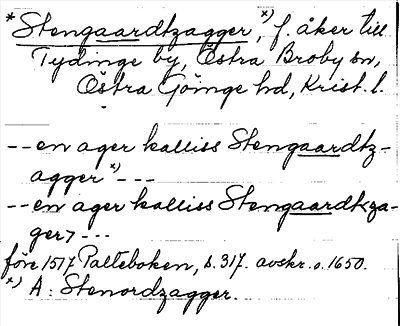 * Stengaardtzagger, *) f. åker till
Tydinge by, Östra Broby sn,
Östra Göinge hd, Krist. l.
-- en ager kalliss Stengaardtz-
agger *) ---
-- en ager kalliss Stengaardt<za-
ger> ---
före 1517 Palteboken, s. 317. avskr. o. 1650.
*) A: Stenordzagger.